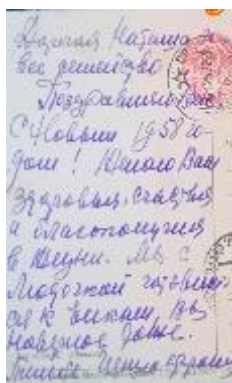 Дорогая Наташа и
все семейство
Поздравляю Вас
С Новым 1958 го-
дом! Желаю Вам
здоровья, счастья
и благополучия
в жизни. Мы с
Людочкой готовим
ся к ёлкам, Вы
наверное тоже.